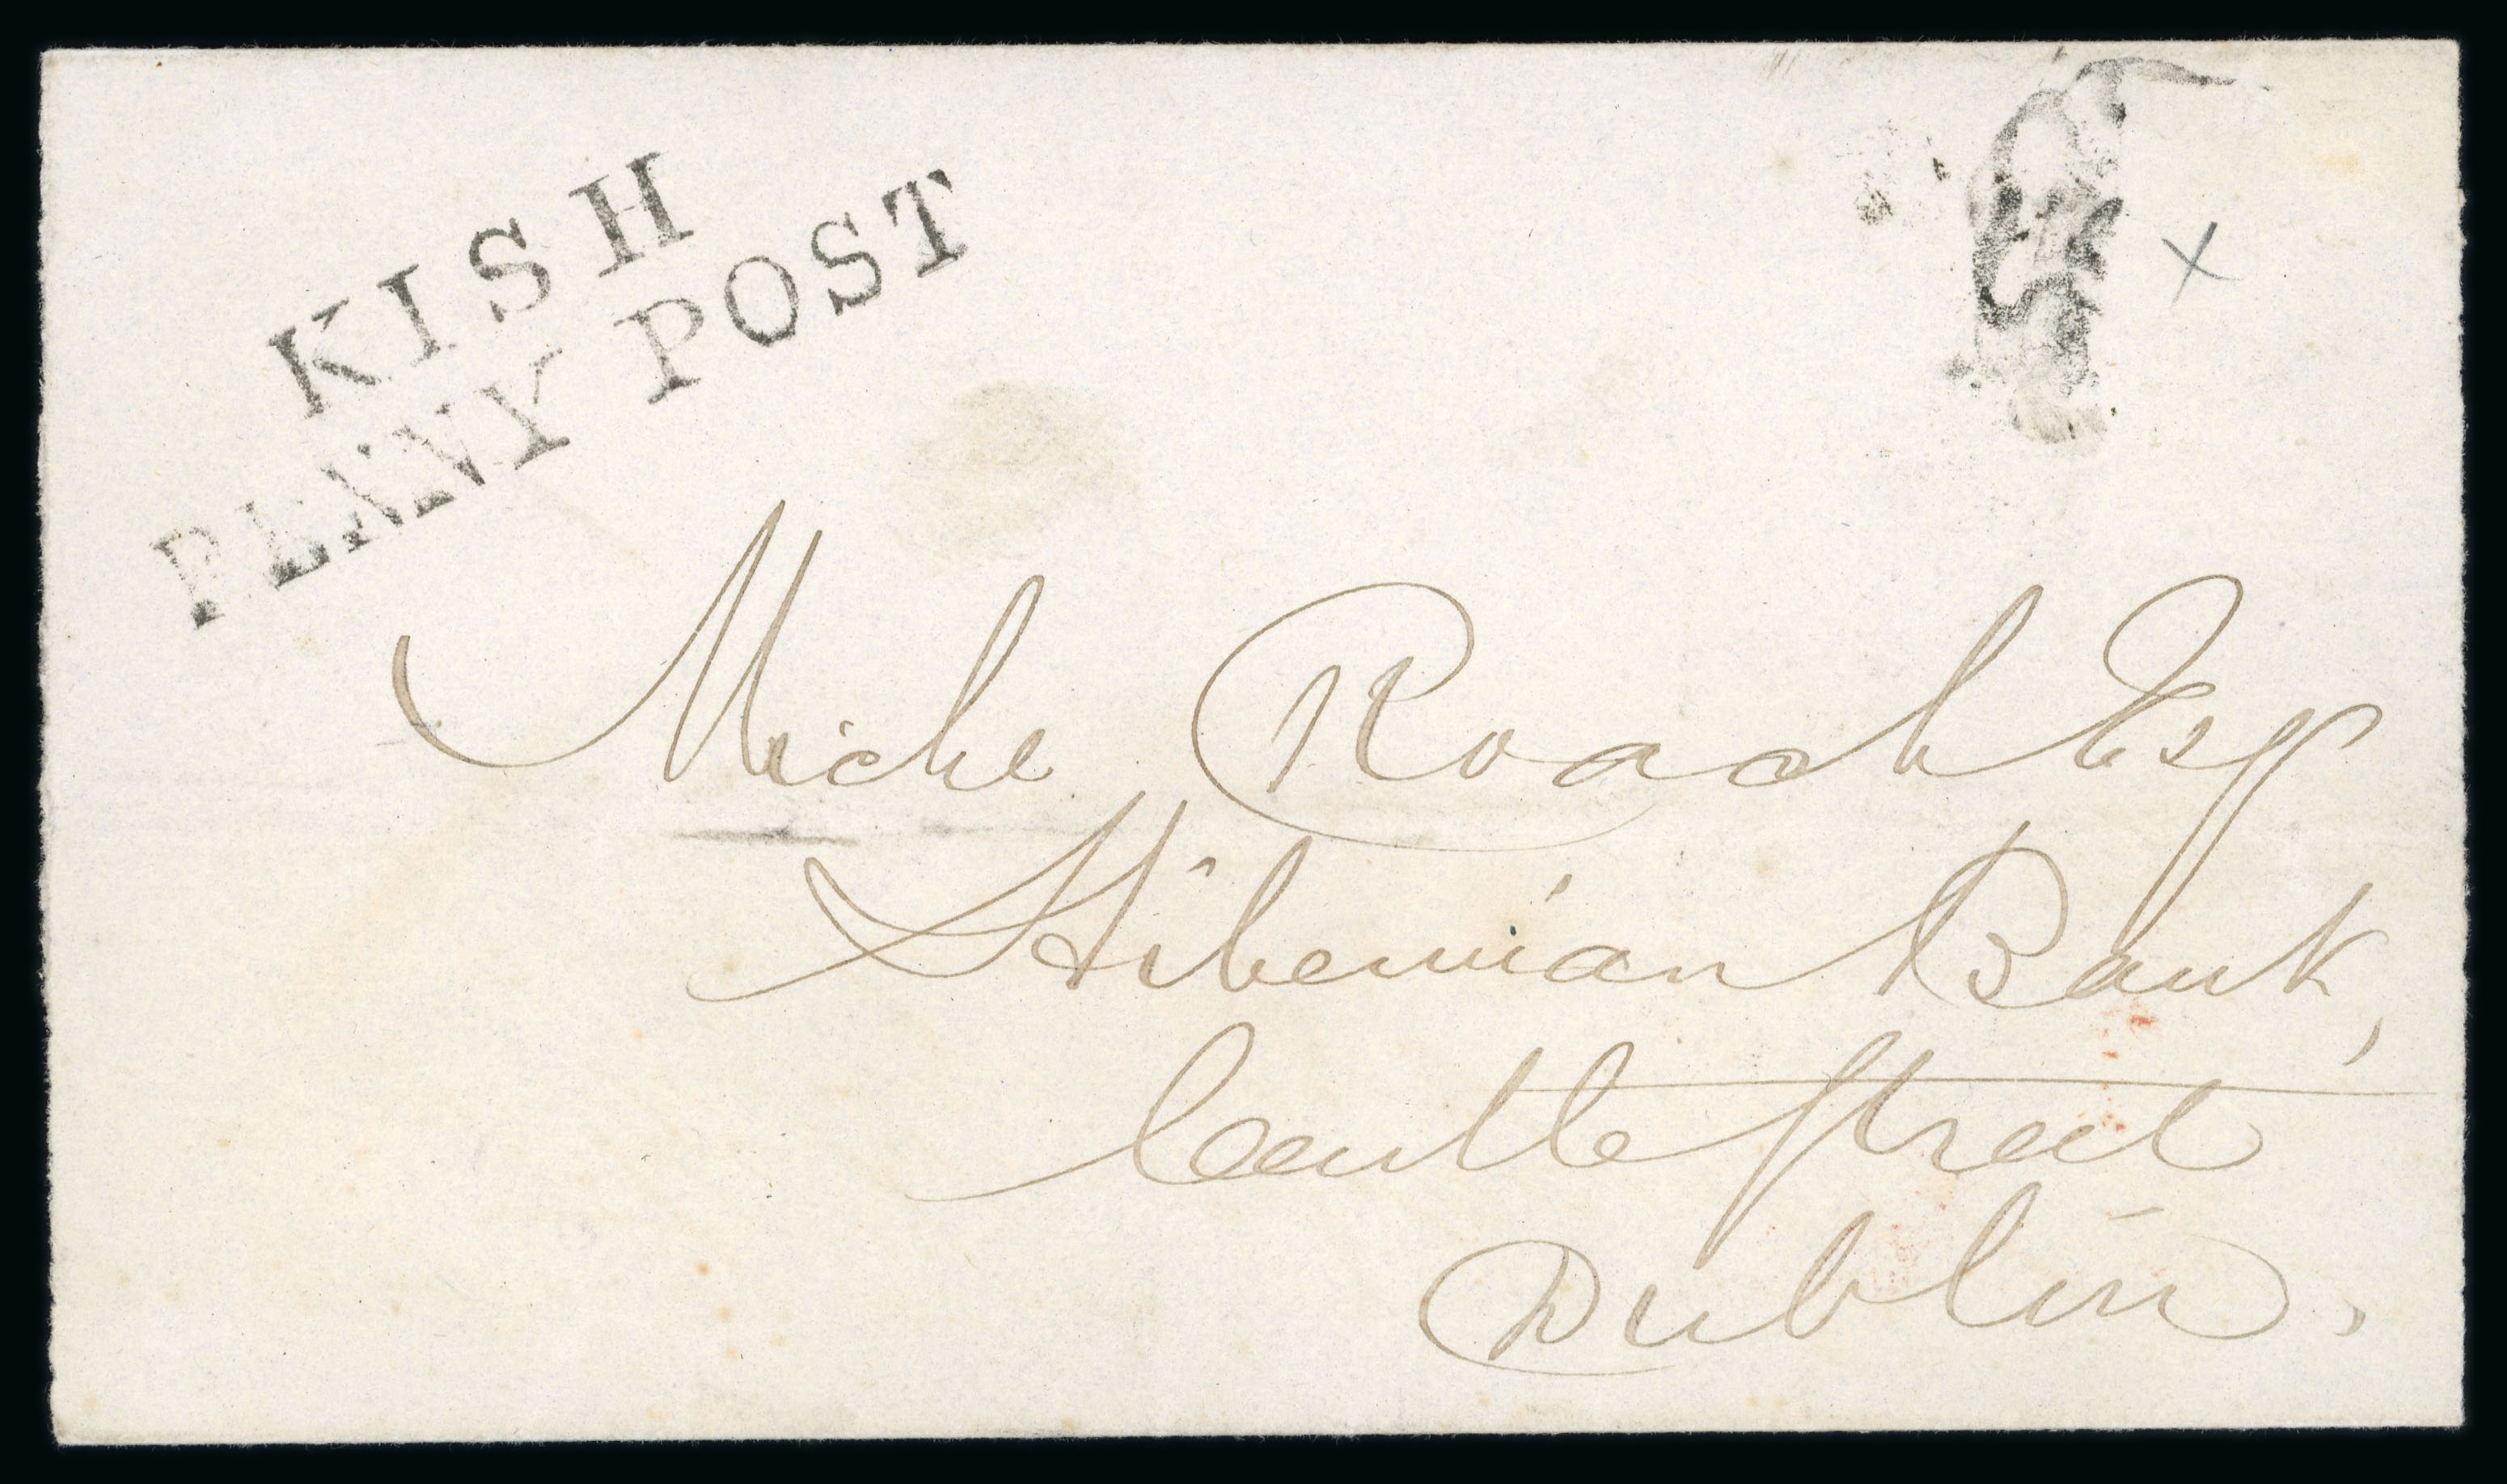 KISH
PENNY POST
Miche Roach Esqr
Hibernian Bank,
Castle Street
Dublin.